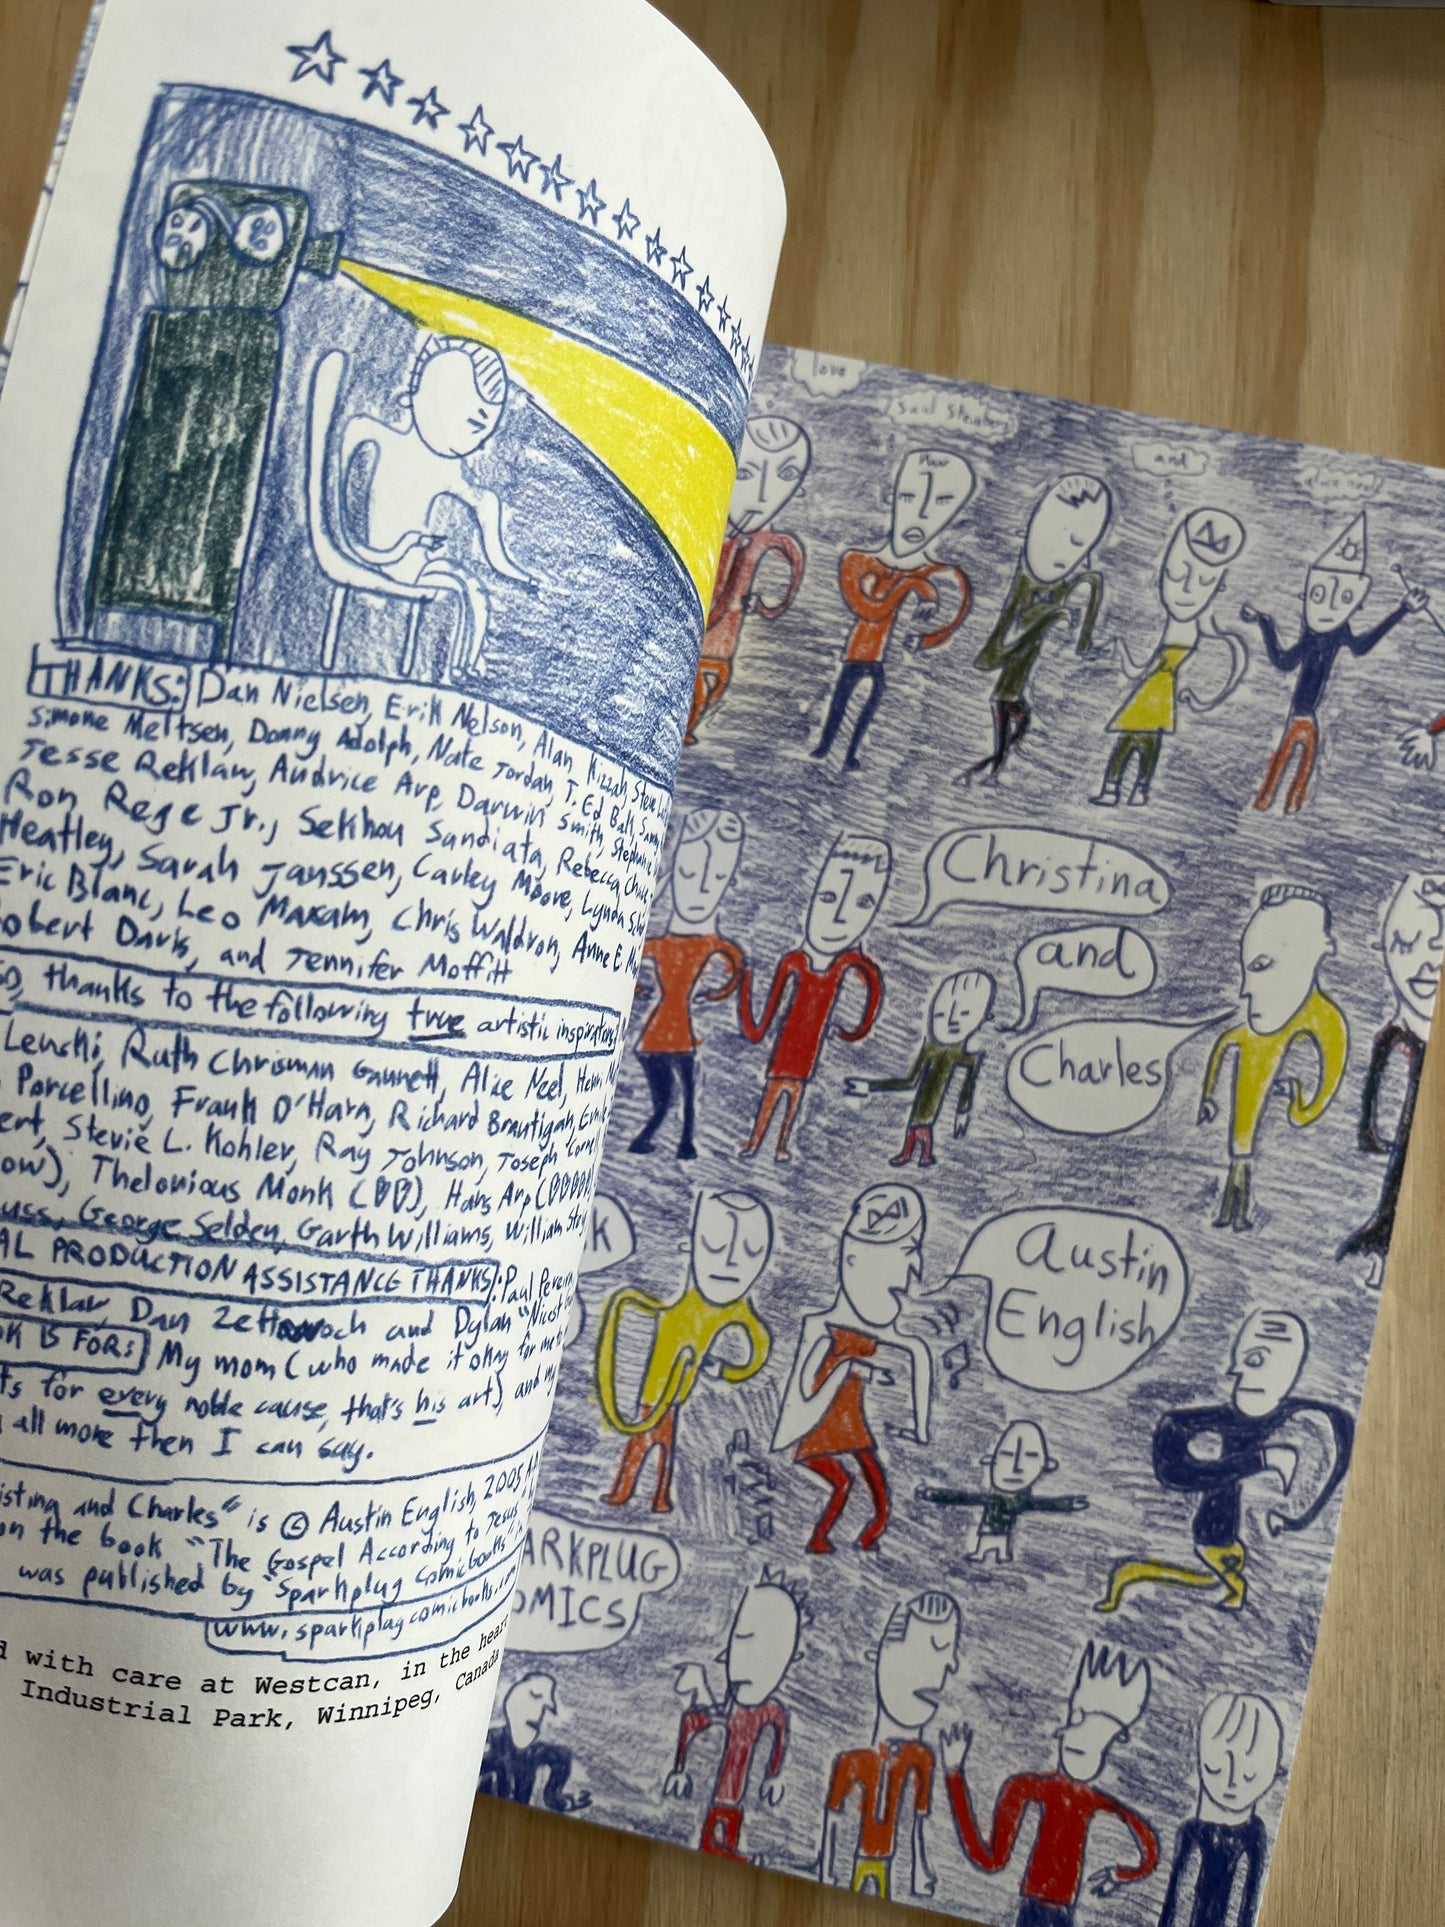 THANKS: Dan Nielsen, Erik Nelson, Alan Kizzah, Steve
Simone Meltsen, Donny Adolph, Nate Jordan, T. Ed Bak,
Jesse Reklaw, Andrice Arp, Darwin Smith, Stephanie
Ron Rege Jr., Sekhou Sundiata, Rebecca
Heatley, Sarah Janssen, Carley Moore, Lynda
Eric Blanc, Leo Maxam, Chris Waldron, Anne E.
obert Davis, and Jennifer Moffitt
so, thanks to the following true artistic inspirations
Lenski, Ruth Chrisman Gannett, Alice Neel, Henri
Porcellino, Frank O'Hara, Richard Brautigan, Ernie
ert, Stevie L. Kohler, Ray Johnson, Joseph Cornell
ow), Thelonious Monk ( ), Hans Arp
uss, George Selden, Garth Williams, William
AL PRODUCTION ASSISTANCE THANKS: Paul
Reklaw, Dan Zettwoch and Dylan
OK IS FOR: My mom (who made it okay for me to
ts for every noble cause, that's his art), and my
all more then I can say.
istina and Charles" is © Austin English, 2005
on the book "The Gospel According to Jesus"
was published by "Sparkplug Comicbooks"
www.sparkplugcomicbooks.com
d with care at Westcan, in the heart
Industrial Park, Winnipeg, Canada
love
Saul Steinberg
and
Christina
and
Charles
k
Austin
English
ARKPLUG
OMICS